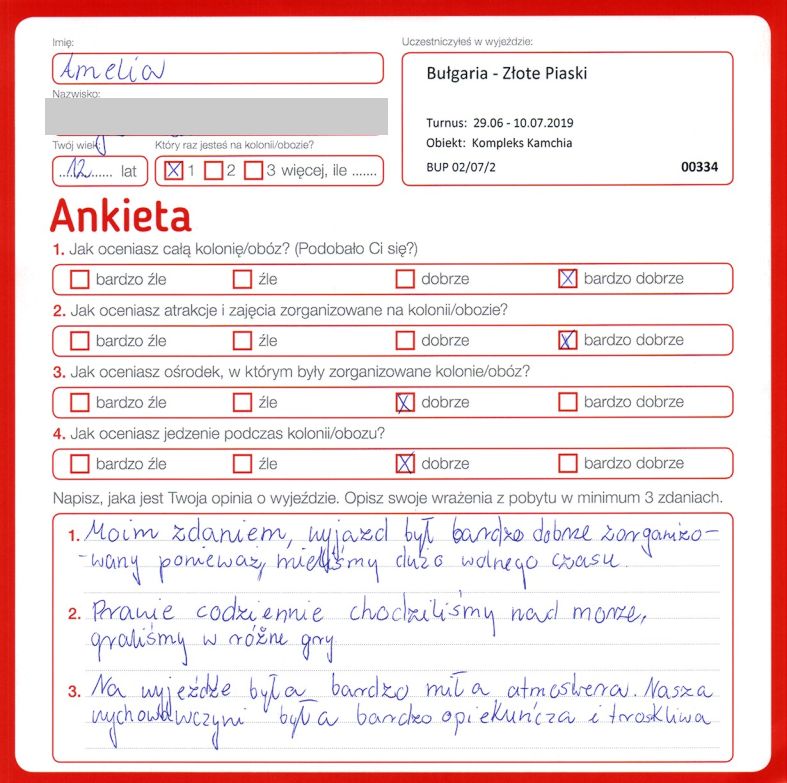 Imię:
Amelia
Nazwisko:
Twój wiek:
12 lat
Który raz jesteś na kolonii/obozie?
1 2 3 więcej, ile .......
Uczestniczyłeś w wyjeździe:
Bułgaria - Złote Piaski
Turnus: 29.06 - 10.07.2019
Obiekt: Kompleks Kamchia
BUP 02/07/2 00334
Ankieta
1. Jak oceniasz całą kolonię/obóz? (Podobało Ci się?)
bardzo źle źle dobrze bardzo dobrze
2. Jak oceniasz atrakcje i zajęcia zorganizowane na kolonii/obozie?
bardzo źle źle dobrze bardzo dobrze
3. Jak oceniasz ośrodek, w którym były zorganizowane kolonie/obóz?
bardzo źle źle dobrze bardzo dobrze
4. Jak oceniasz jedzenie podczas kolonii/obozu?
bardzo źle źle dobrze bardzo dobrze
Napisz, jaka jest Twoja opinia o wyjeździe. Opisz swoje wrażenia z pobytu w minimum 3 zdaniach.
1. Moim zdaniem, wyjazd był bardzo dobrze zorganizo-
-wany ponieważ, mieliśmy dużo wolnego czasu.
2. Prawie codziennie chodziliśmy nad morze,
graliśmy w różne gry
3. Na wyjeździe była bardzo miła atmoswera. Nasza
wychowawczyni była bardzo opiekuńcza i troskliwa